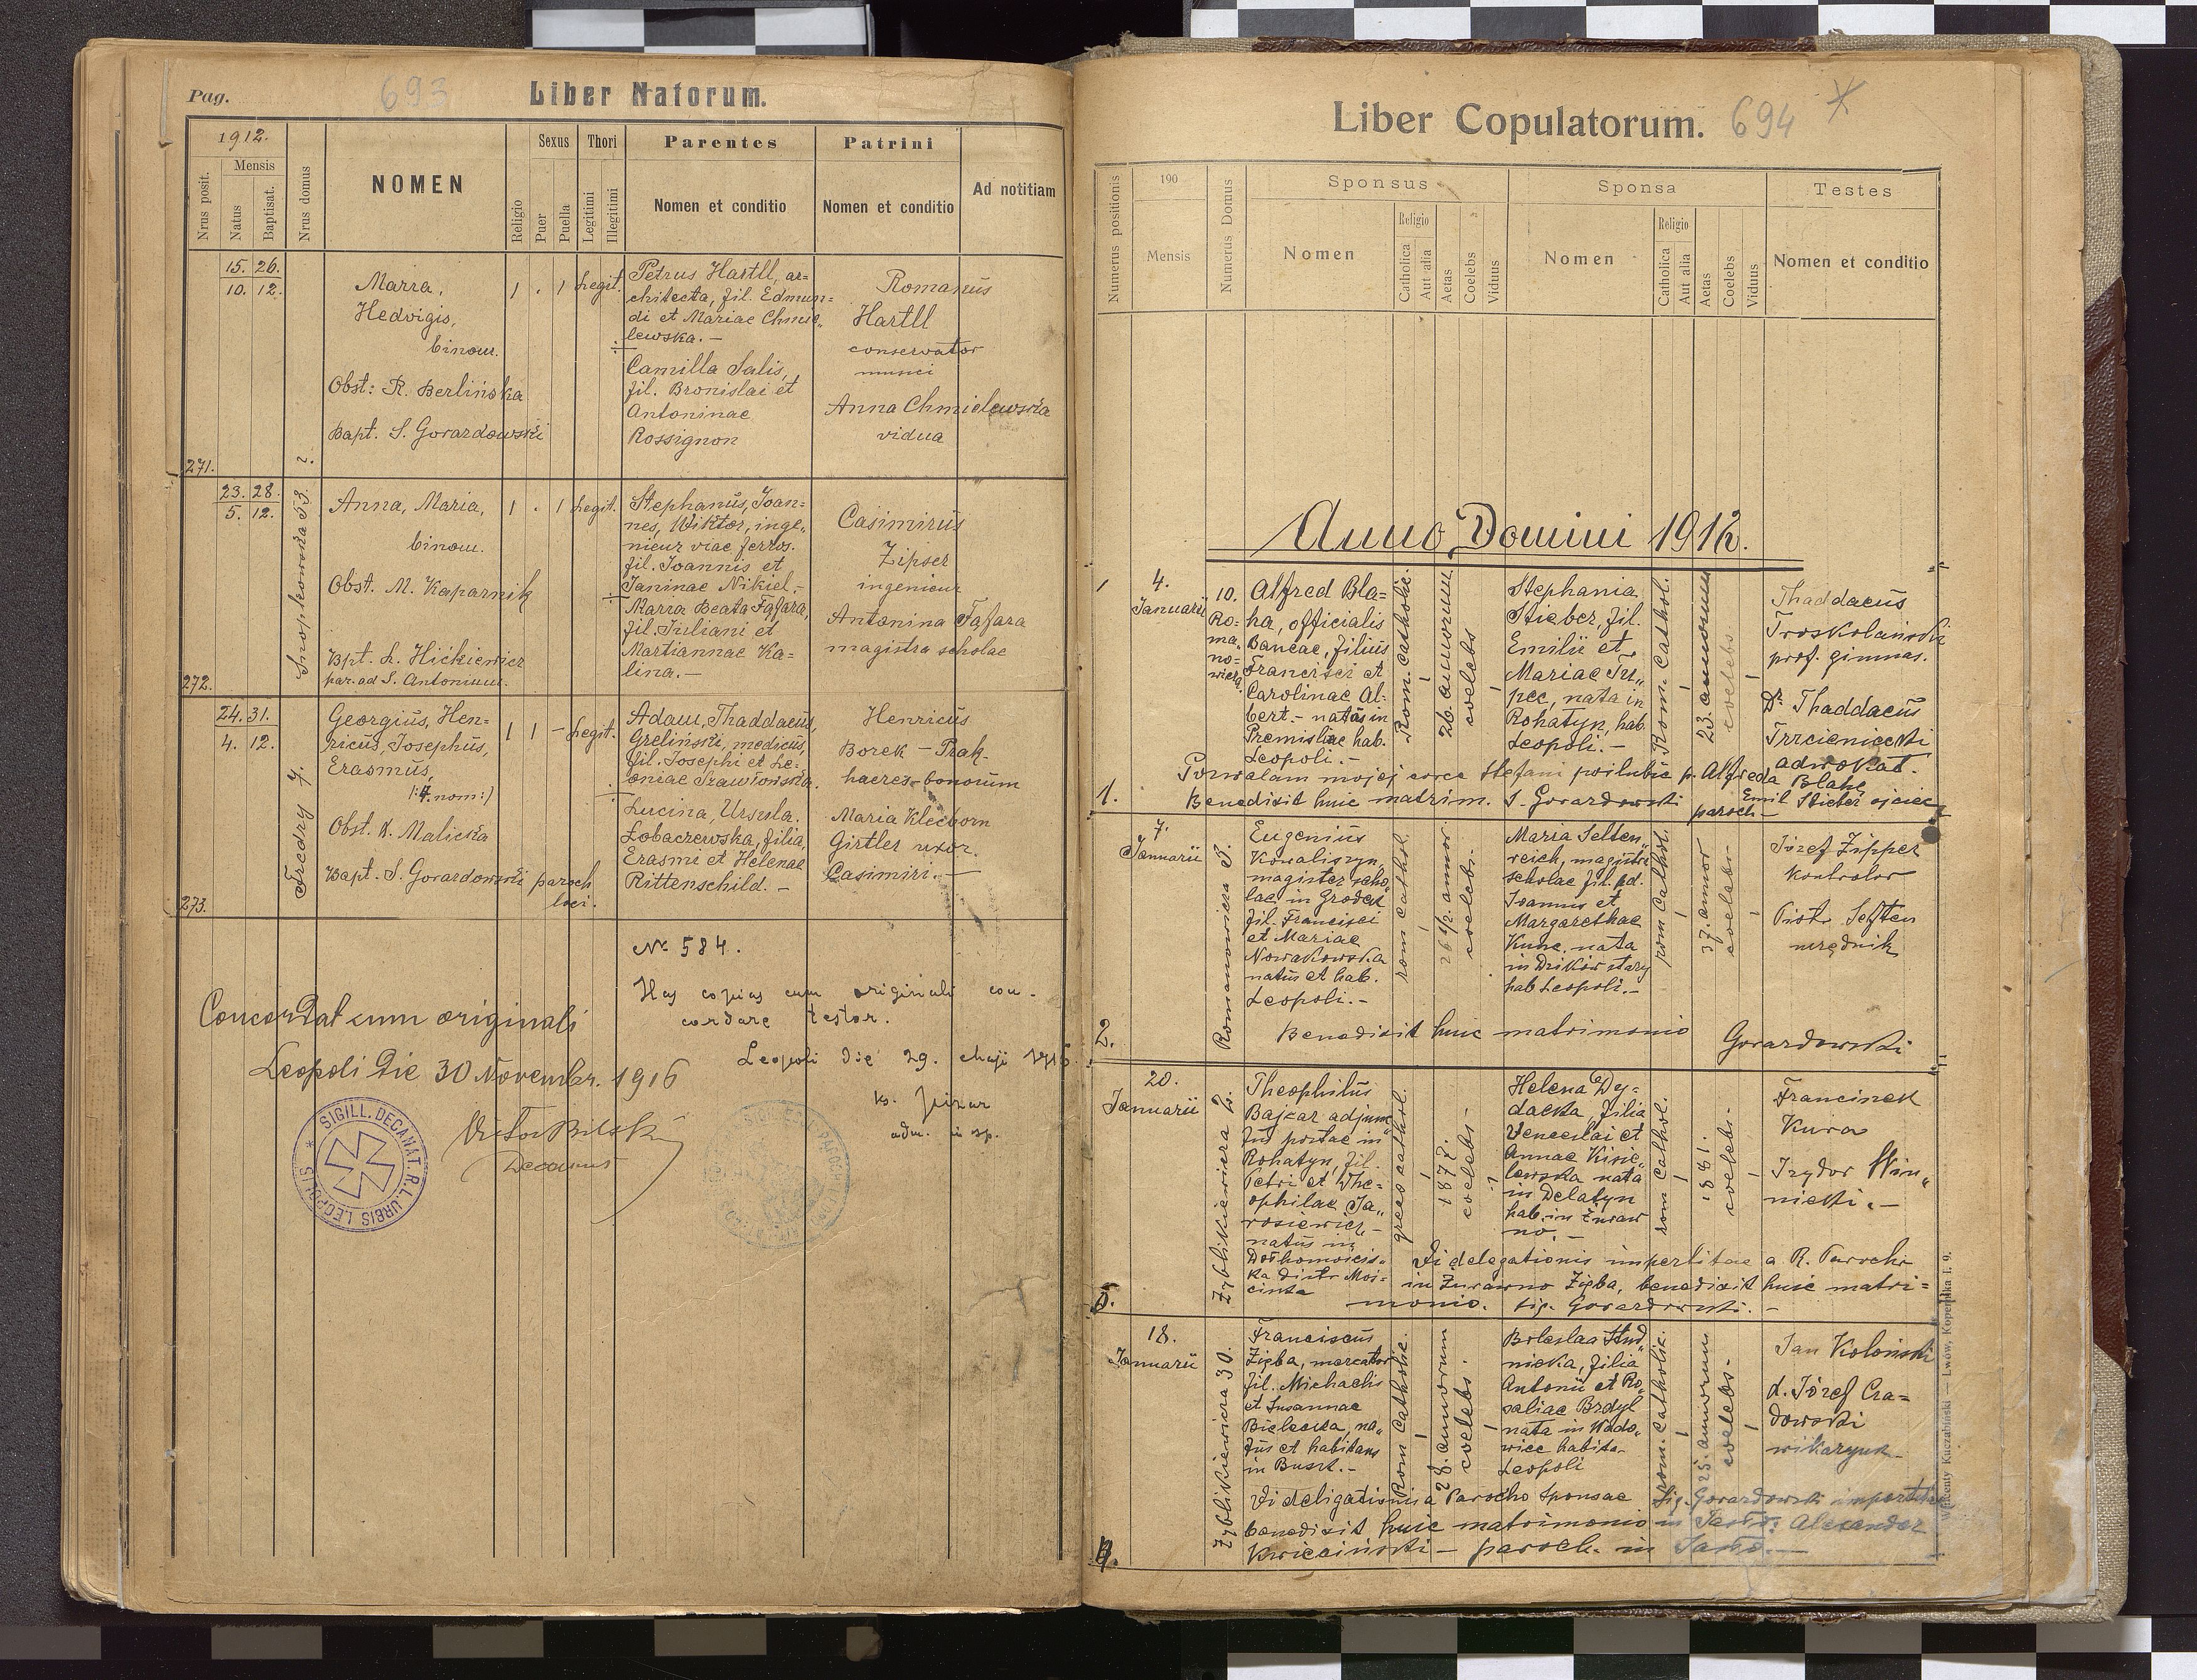 Pag.
693
Liber Natorum.
1912.
Nrus posit.
Mensis
Natus
Baptisat.
Nrus domus
NOMEN
Religio
Sexus
Puer
Puella
Thori
Legitimi
Illegitimi
Parentes
Nomen et conditio
Patrini
Nomen et conditio
Ad notitiam
271.
15. 26.
10. 12.
?
Maria,
Hedvigis,
binom.
Obst: R. Berlińska
Bapt. S. Gorazdowski
1 . 1 Legit.
Petrus Hartll, ar=
chitecta, fil. Edmun=
di et Mariae Chmie„
lewska. -
Camilla Salis,
fil. Bronislai et
Antoninae
Rossignon
Romanus
Hartll
conservator
musei
Anna Chmielewska
vidua
272.
23. 28.
5. 12.
Snopkowska 53.
Anna, Maria,
binom.
Obst. M. Kaparnik
Bpt. L. Hickiewicz
par. ad S. Antonium.
1 . 1 Legit.
Stephanus, Joan=
nes, Wiktor, inge„
nieur viae ferros.
fil. Joannis et
Janinae Nikiel.-
Maria Beata Fafara,
fil. Juliani et
Martiannae Ka=
lina.-
Casimirus
Zipser
ingenieur
Antonina Fafara
magistra scholae
273.
24. 31.
4. 12.
Fredry 7.
Georgius, Hen=
ricus, Josephus,
Erasmus,
/:4. nom:/
Obst. K. Malicka
Bapt. S. Gorazdowski paroch
loci.
1 1 - Legit.
Adam, Thaddaeus,
Greliński, medicus,
fil. Josephi et Le=
oniae
Lucina, Ursula.
Łobaczewska, filia,
Erasmi et Helenae
Rittenschild. -
Henricus
Borek - Prek-
haeres bonorum
Maria Kleeborn
Girtler uxor.
Casimiri. -
No 584.
Has copias cum originali con-
cordare testor.
Leopoli die 29. Maji 1916.
ks.
adm. in sp.
Concordat cum originali
Leopoli Die 30 Novembr. 1916
Victor Bilski
Decanus
* SIGILL. DECANAT. R. L. URBIS LEOPOLIS
Liber Copulatorum.
694
Numerus positionis
190
Mensis
Numerus Domus
Sponsus
Nomen
Religio
Catholica
Aut alia
Aetas
Coelebs
Viduus
Sponsa
Nomen
Religio
Catholica
Aut alia
Aetas
Coelebs
Viduus
Testes
Nomen et conditio
Anno Domini 1912.
1
4.
Januarii
10.
Ro-
ma„
no=
wicza.
Alfred Bla=
ha, officialis
Bancae, filius
Francisci et
Carolinae Al-
bert.- natus in
Premisliae hab.
Leopoli.-
Rom. Catholic.
26. annorum
coelebs
Stephania
Stieber, fil.
Emilii et
Mariae Tu„
pec, nata in
Rohatyn, hab.
Leopoli.-
Rom. Cathol.
23. annorum
coelebs
Thaddaeus
Troskolański
prof. gimnas.
Dr Thaddaeus
Trzcieniecki
adwokat.
Pozwalam mojej córce Stefani poślubić p. Alfreda Blahę
Emil Stieber ojciec
1.
Benedixit huic matrim. S. Gorazdowski paroch-
7.
Januarii
Romanowicza 3.
Eugenius
Kowaliszyn,
magister scho„
lae in Grodek
fil. Francisci
et Mariae
Nowakowska
natus et hab.
Leopoli.-
rom cathol.
26 1/2. annor
coelebs.
Maria Selten„
reich, magistra
scholae fil. pd.
Joannis et
Margarethae
Kunc. nata
in Dzików stary
hab Leopoli.-
rom Cathol.
37. annor
coelebs-
Józef Zipper
Kontrolor
Piotr Seften
urzędnik
2.
Benedixit huic matrimonio Gorazdowski
20.
Januarii
Zyblikiewicza 2.
Theophilus
Bajcar adjunc„
tus postae in
Rohatyn, fil.
Petri et The=
ophilae Ja„
rosiewicz-
natus in
ka distr Moś=
ciska
greco cathol.
1877.
coelebs-
Helena Dy=
dacka, filia
Venceslai et
Annae Kisie„
lewska nata
in Delatyn
hab. in Żuraw
no.-
rom Cathol.
1881.
coelebs.
Franciszek
Kura
Izydor Win„
nicki.-
Vi delegationis impertitae a R. Parocho
in Żurawno Zięba, benedixit huic matri=
monio. Sig. Gorazdowski.-
18.
Januarii
Zyblikiewicza 30.
Franciscus
Zięba, mercator
fil. Michaelis
et Susannae
Bielecka, na„
tus et habitans
in Busk.-
Rom Catholic.
28. annorum
coelebs.
Boleslaa Stud„
nicka, filia
Antonii et Ro„
saliae Brdyl
nata in Wado„
wice habita-
Leopoli
rom. Catholic.
25. annorum
coelebs-
Jan Koloński
d. Józef Cza=
dowski
wikaryusz
Vi deligationis a Parocho Sponsae Sig. Gorazdowski impertitae
benedixit huic matrimonio in Jasło: Alexander
Kwieciński - paroch. in Jasło.-
Wincenty Kuczabiński — Lwów, Kopernika l. 9.